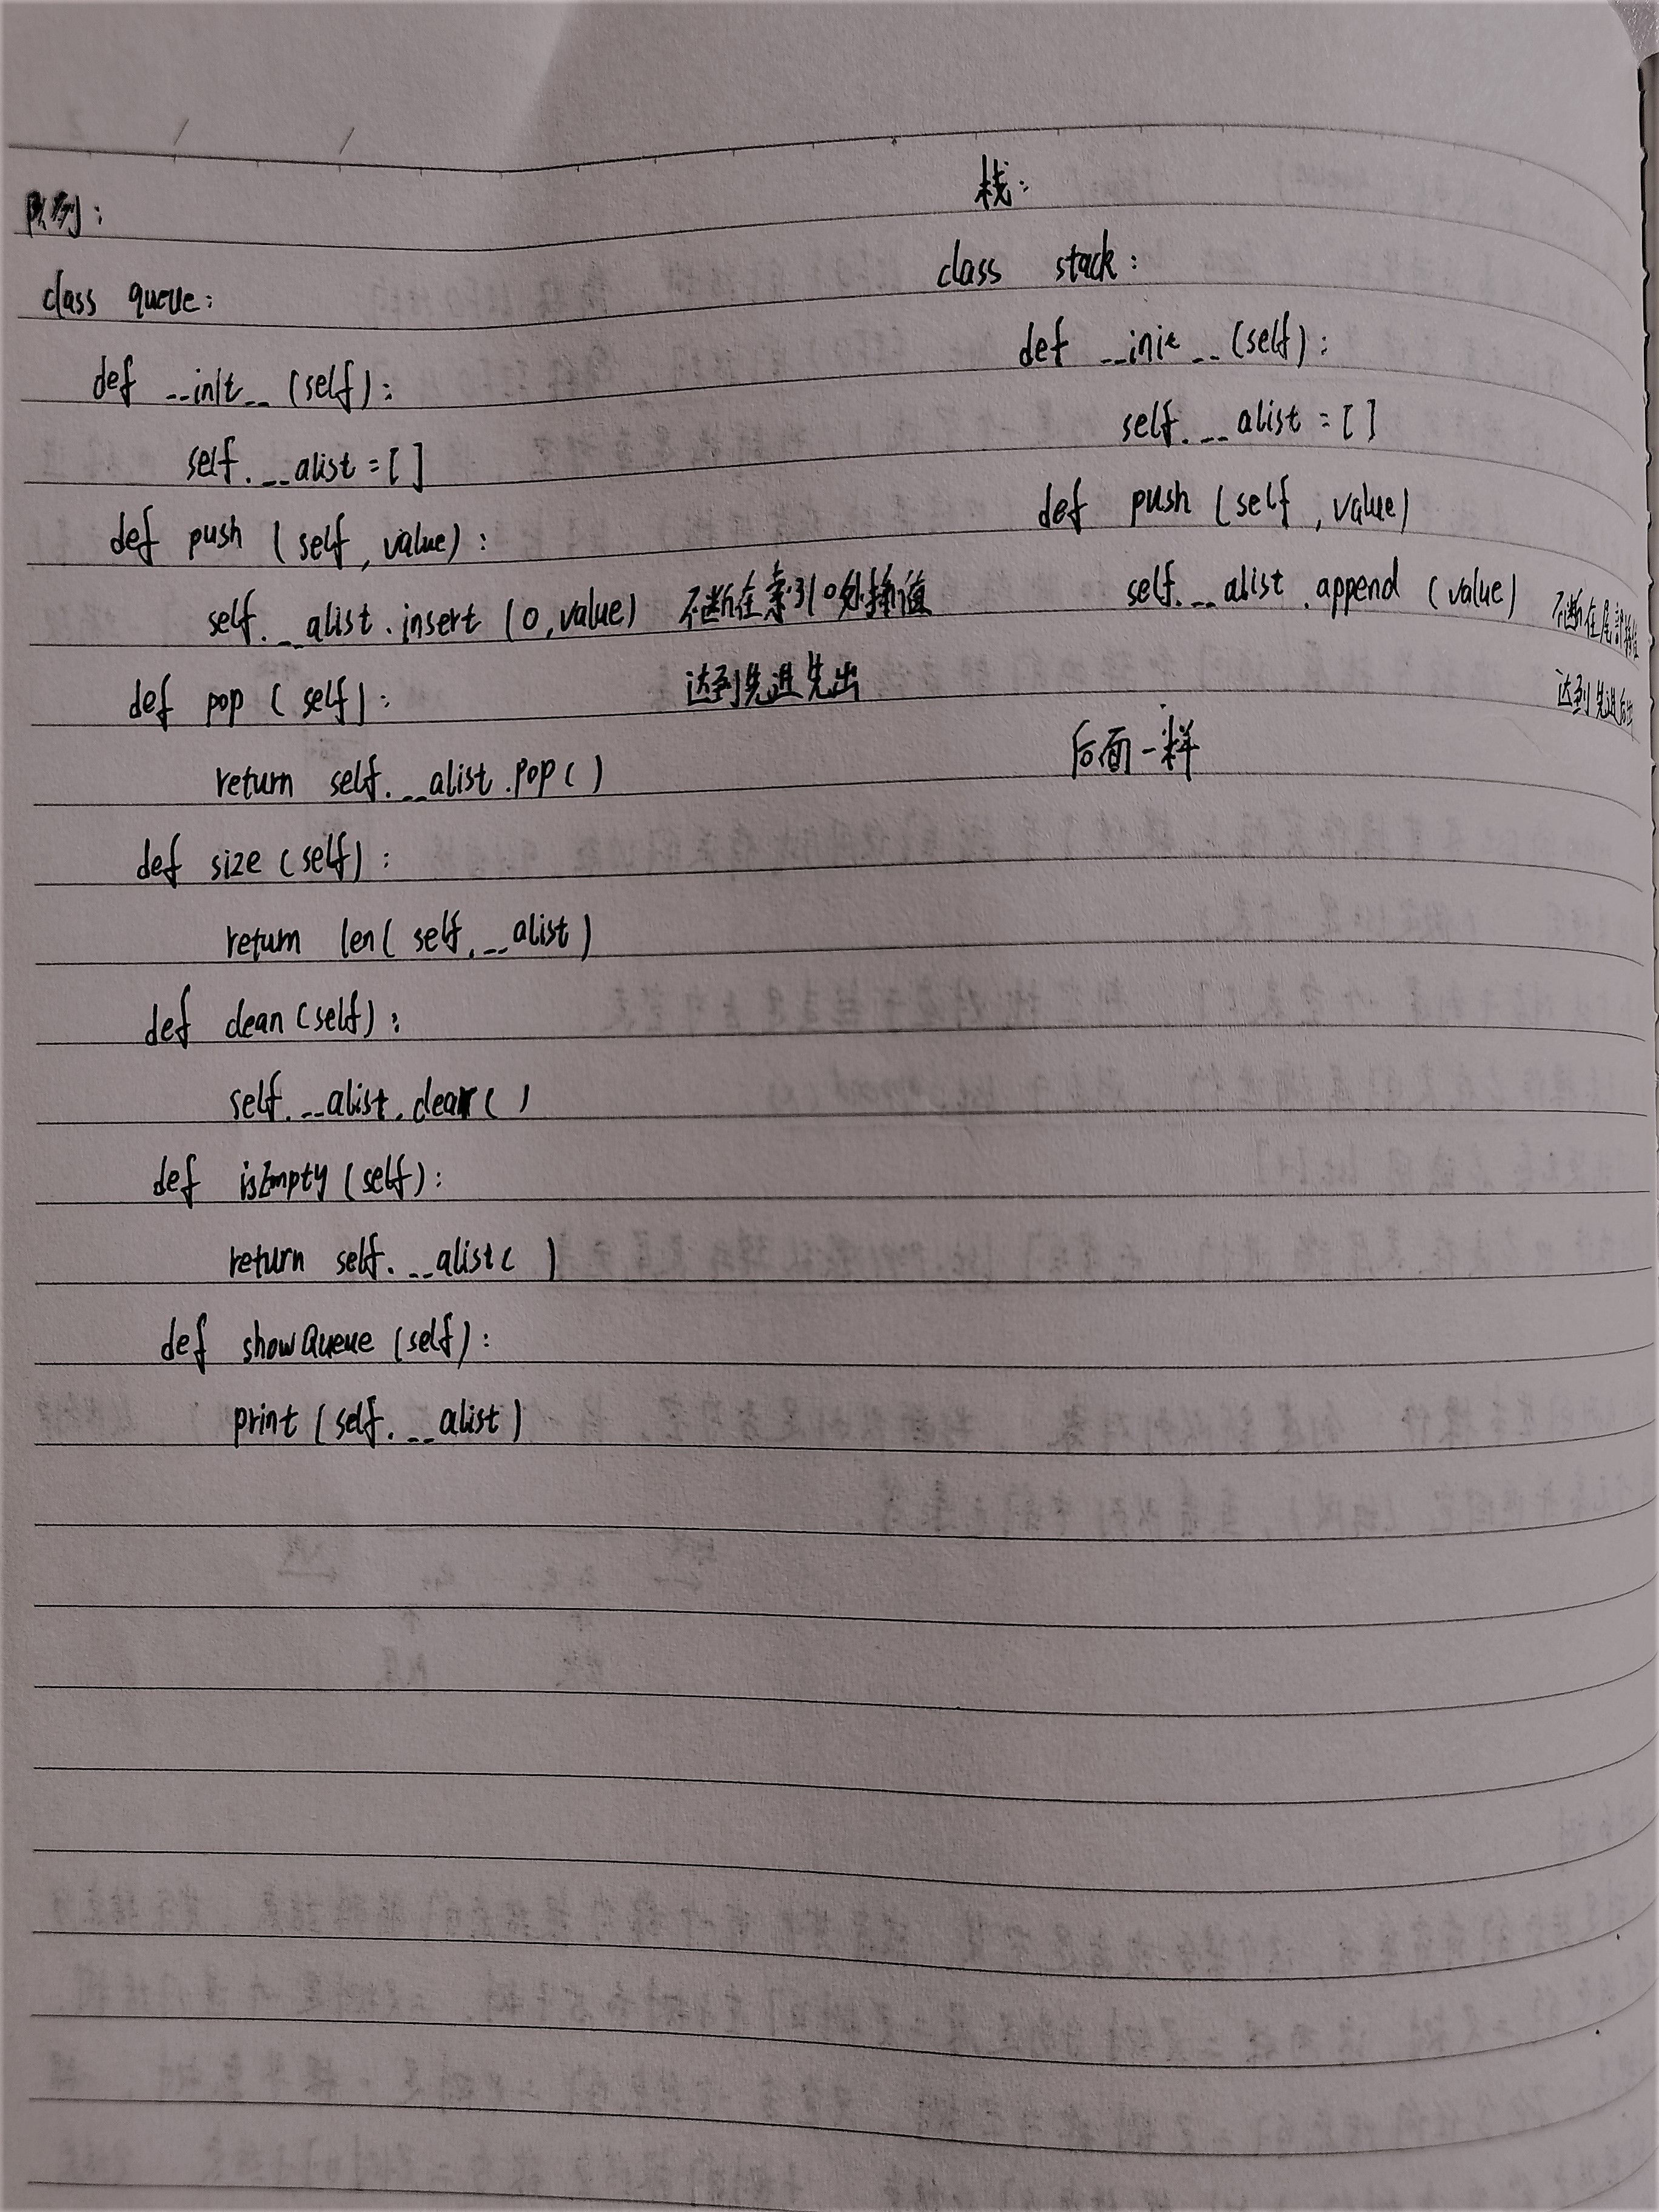 队列：
class queue:
def __init__(self):
self.__alist=[]
def push(self,value):
self.__alist.insert(0,value) 不断在索引0处插值
def pop(self): 达到先进先出
return self.__alist.pop()
def size(self):
return len(self.__alist)
def clean(self):
self.__alist.clear()
def isEmpty(self):
return self.__alist( )
def showQueue(self):
print(self.__alist)
栈：
class stack:
def __init__(self):
self.__alist=[]
def push(self,value)
self.__alist.append(value) 不断在尾部插值
达到先进后出
后面一样